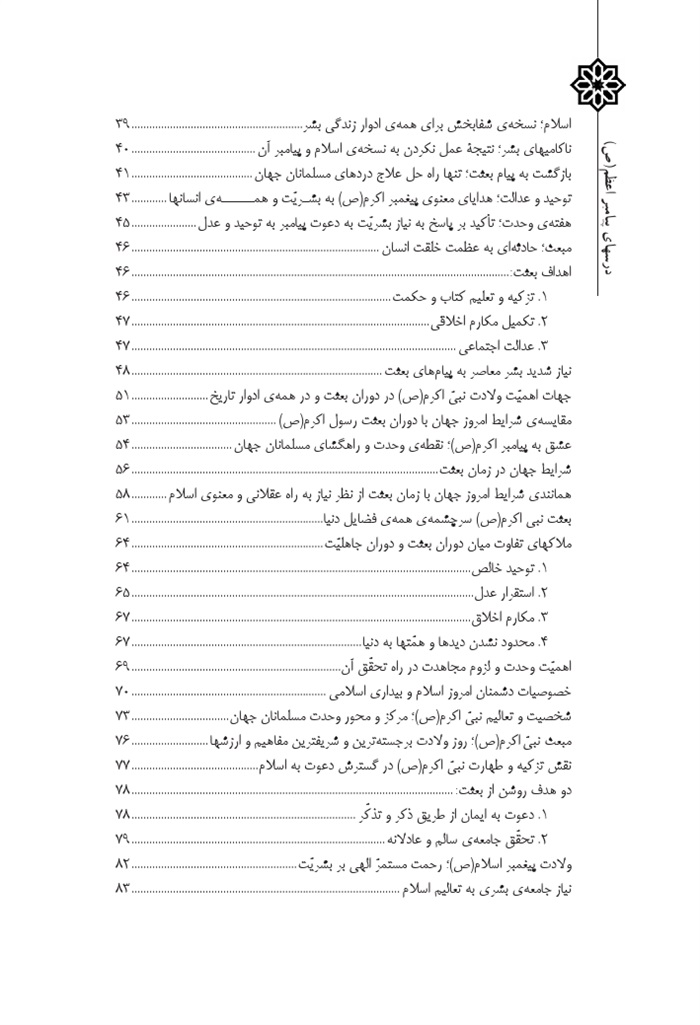 درسهای پیامبر اعظم(ص)
اسلام؛ نسخه‌ی شفابخش برای همه‌ی ادوار زندگی بشر ... ۳۹
ناکامیهای بشر؛ نتیجهٔ عمل نکردن به نسخه‌ی اسلام و پیامبر آن ... ۴۰
بازگشت به پیام بعثت؛ تنها راه حل علاج دردهای مسلمانان جهان ... ۴۱
توحید و عدالت؛ هدایای معنوی پیغمبر اکرم(ص) به بشـریّت و همـــــه‌ی انسانها ... ۴۳
هفته‌ی وحدت؛ تأکید بر پاسخ به نیاز بشریّت به دعوت پیامبر به توحید و عدل ... ۴۵
مبعث؛ حادثه‌ای به عظمت خلقت انسان ... ۴۶
اهداف بعثت: ... ۴۶
۱. تزکیه و تعلیم کتاب و حکمت ... ۴۶
۲. تکمیل مکارم اخلاقی ... ۴۷
۳. عدالت اجتماعی ... ۴۷
نیاز شدید بشر معاصر به پیام‌های بعثت ... ۴۸
جهات اهمیّت ولادت نبیّ اکرم(ص) در دوران بعثت و در همه‌ی ادوار تاریخ ... ۵۱
مقایسه‌ی شرایط امروز جهان با دوران بعثت رسول اکرم(ص) ... ۵۳
عشق به پیامبر اکرم(ص)؛ نقطه‌ی وحدت و راهگشای مسلمانان جهان ... ۵۴
شرایط جهان در زمان بعثت ... ۵۶
همانندی شرایط امروز جهان با زمان بعثت از نظر نیاز به راه عقلانی و معنوی اسلام ... ۵۸
بعثت نبی اکرم(ص) سرچشمه‌ی همه‌ی فضایل دنیا ... ۶۱
ملاکهای تفاوت میان دوران بعثت و دوران جاهلیّت ... ۶۴
۱. توحید خالص ... ۶۴
۲. استقرار عدل ... ۶۵
۳. مکارم اخلاق ... ۶۷
۴. محدود نشدن دیدها و همّتها به دنیا ... ۶۷
اهمیّت وحدت و لزوم مجاهدت در راه تحقّق آن ... ۶۹
خصوصیات دشمنان امروز اسلام و بیداری اسلامی ... ۷۰
شخصیت و تعالیم نبیّ اکرم(ص)؛ مرکز و محور وحدت مسلمانان جهان ... ۷۳
مبعث نبیّ اکرم(ص)؛ روز ولادت برجسته‌ترین و شریفترین مفاهیم و ارزشها ... ۷۶
نقش تزکیه و طهارت نبیّ اکرم(ص) در گسترش دعوت به اسلام ... ۷۷
دو هدف روشن از بعثت: ... ۷۸
۱. دعوت به ایمان از طریق ذکر و تذکّر ... ۷۸
۲. تحقّق جامعه‌ی سالم و عادلانه ... ۷۹
ولادت پیغمبر اسلام(ص)؛ رحمت مستمرّ الهی بر بشریّت ... ۸۲
نیاز جامعه‌ی بشری به تعالیم اسلام ... ۸۳